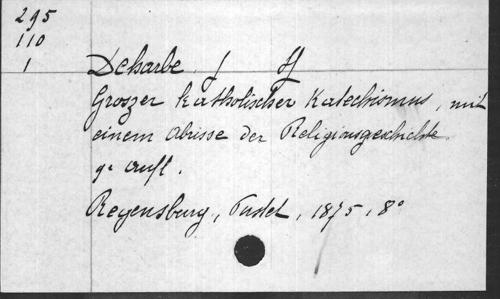 295
110
1
Deharbe, J
Groszer Katholischer Katechismus, mit
einem Abrisse der Religionsgeschichte.
9e Aufl.
Regensburg, Pustet, 1875, 8°